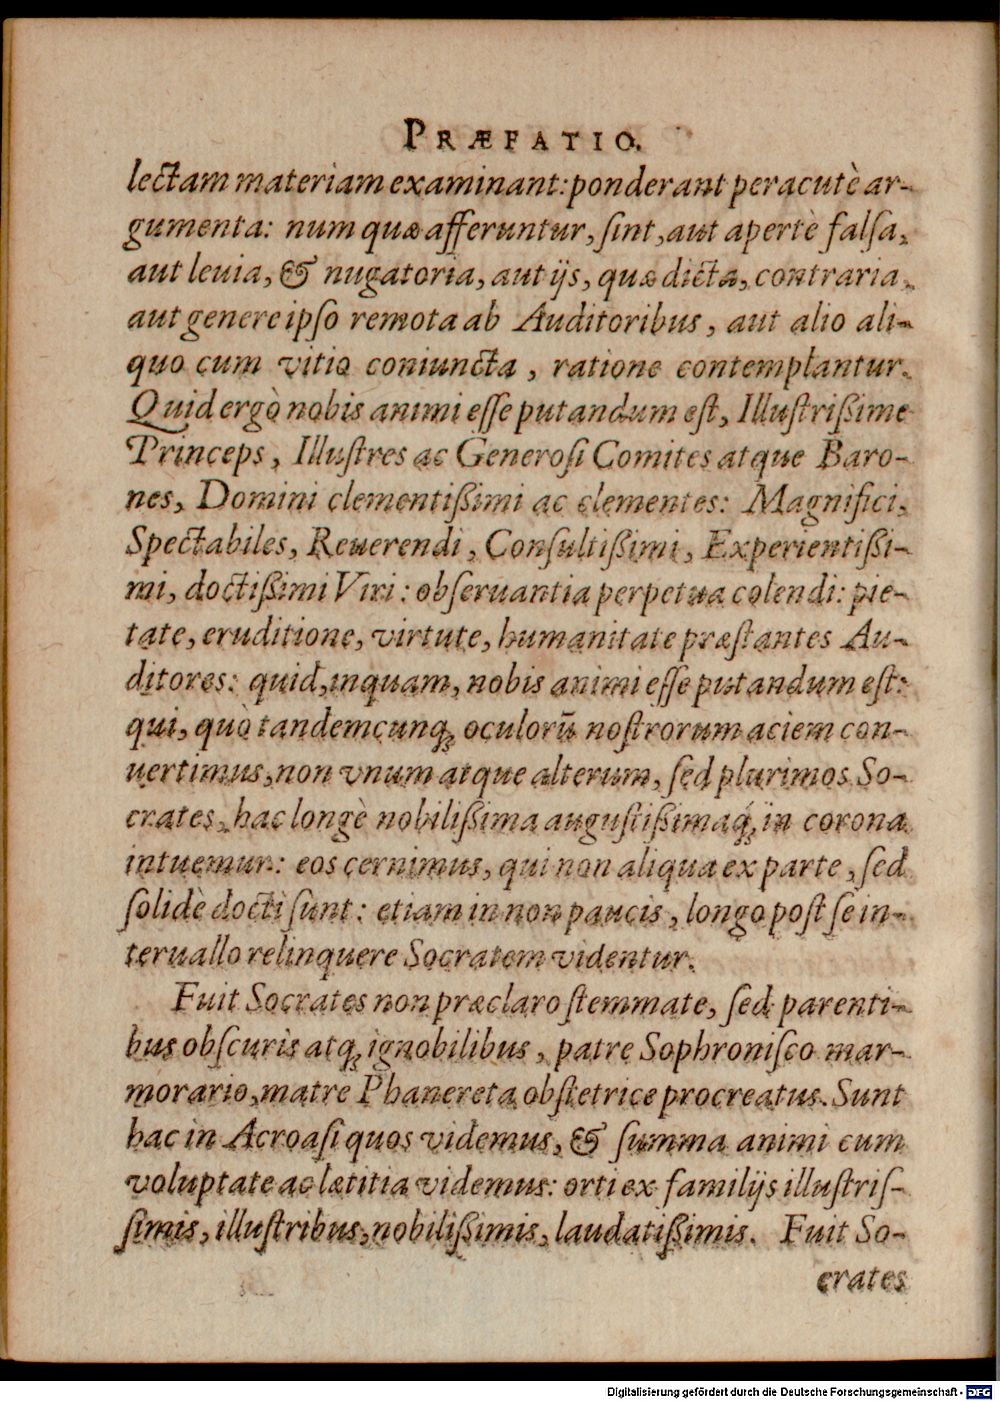 PRÆFATIO.
lectam materiam examinant: ponderant peracutè ar-
gumenta: num quæ afferuntur, ſint, aut apertè falſa,
aut leuia, & nugatoria, aut ijs, quæ dicta, contraria,
aut genere ipſo remota ab Auditoribus, aut alio ali-
quo cum vitio coniuncta, ratione contemplantur.
Quid ergò nobis animi eſſe putandum eſt, Illuſtrißime
Princeps, Illuſtres ac Generoſi Comites atque Baro-
nes, Domini clementißimi ac clementes: Magnifici,
Spectabiles, Reuerendi, Conſultißimi, Experientißi-
mi, doctißimi Viri: obſeruantia perpetua colendi: pie-
tate, eruditione, virtute, humanitate præſtantes Au-
ditores: quid, inquam, nobis animi eſſe putandum eſt:
qui, quò tandemcunq; oculorũ noſtrorum aciem con-
uertimus, non vnum atque alterum, ſed plurimos So-
crates, hac longè nobilißima auguſtißimaq́; in corona
intuemur: eos cernimus, qui non aliqua ex parte, ſed
ſolidè docti ſunt: etiam in non paucis, longo poſt ſe in-
teruallo relinquere Socratem videntur.
Fuit Socrates non præclaro ſtemmate, ſed parenti-
bus obſcuris atq; ignobilibus, patre Sophroniſco mar-
morario, matre Phanereta obſtetrice procreatus. Sunt
hac in Acroaſi quos videmus, & ſumma animi cum
voluptate ac lætitia videmus: orti ex familijs illuſtriſ-
ſimis, illuſtribus, nobilißimis, laudatißimis. Fuit So-
crates
Digitalisierung gefördert durch die Deutsche Forschungsgemeinschaft - DFG